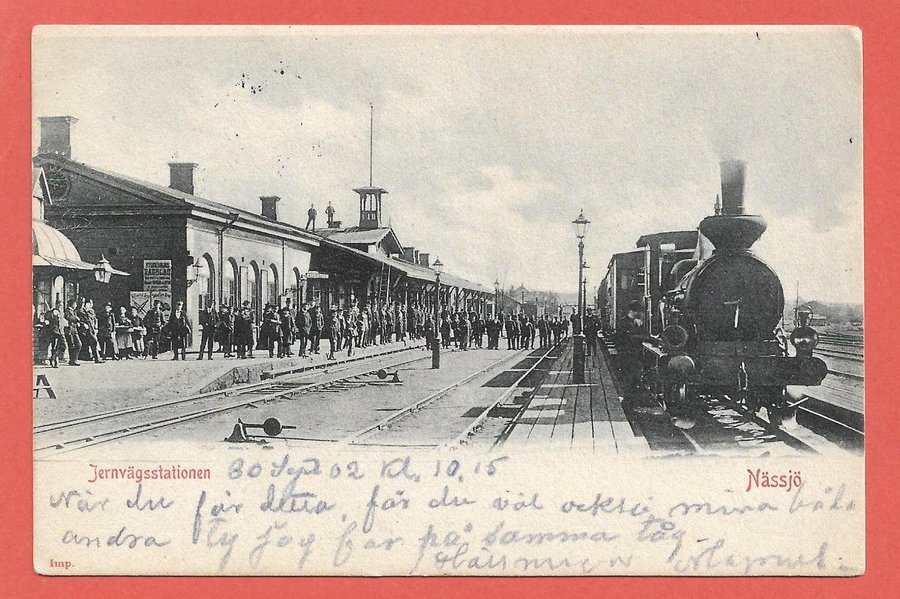 Jernvägsstationen
30 Sept 02 Kl. 10.15
Nässjö
När du får detta, får du väl också mina båda
andra Ty jag far på samma tåg.
Imp.